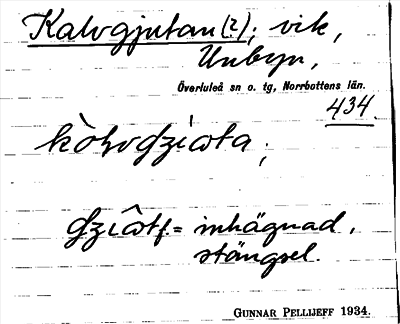 Kalvgjutan (?); vik,
Unbyn,
Överluleå sn o. tg, Norrbottens län.
434.
kòlvʤiωta;
ʤiω̂t f. = inhägnad,
stängsel.
GUNNAR PELLIJEFF 1934.